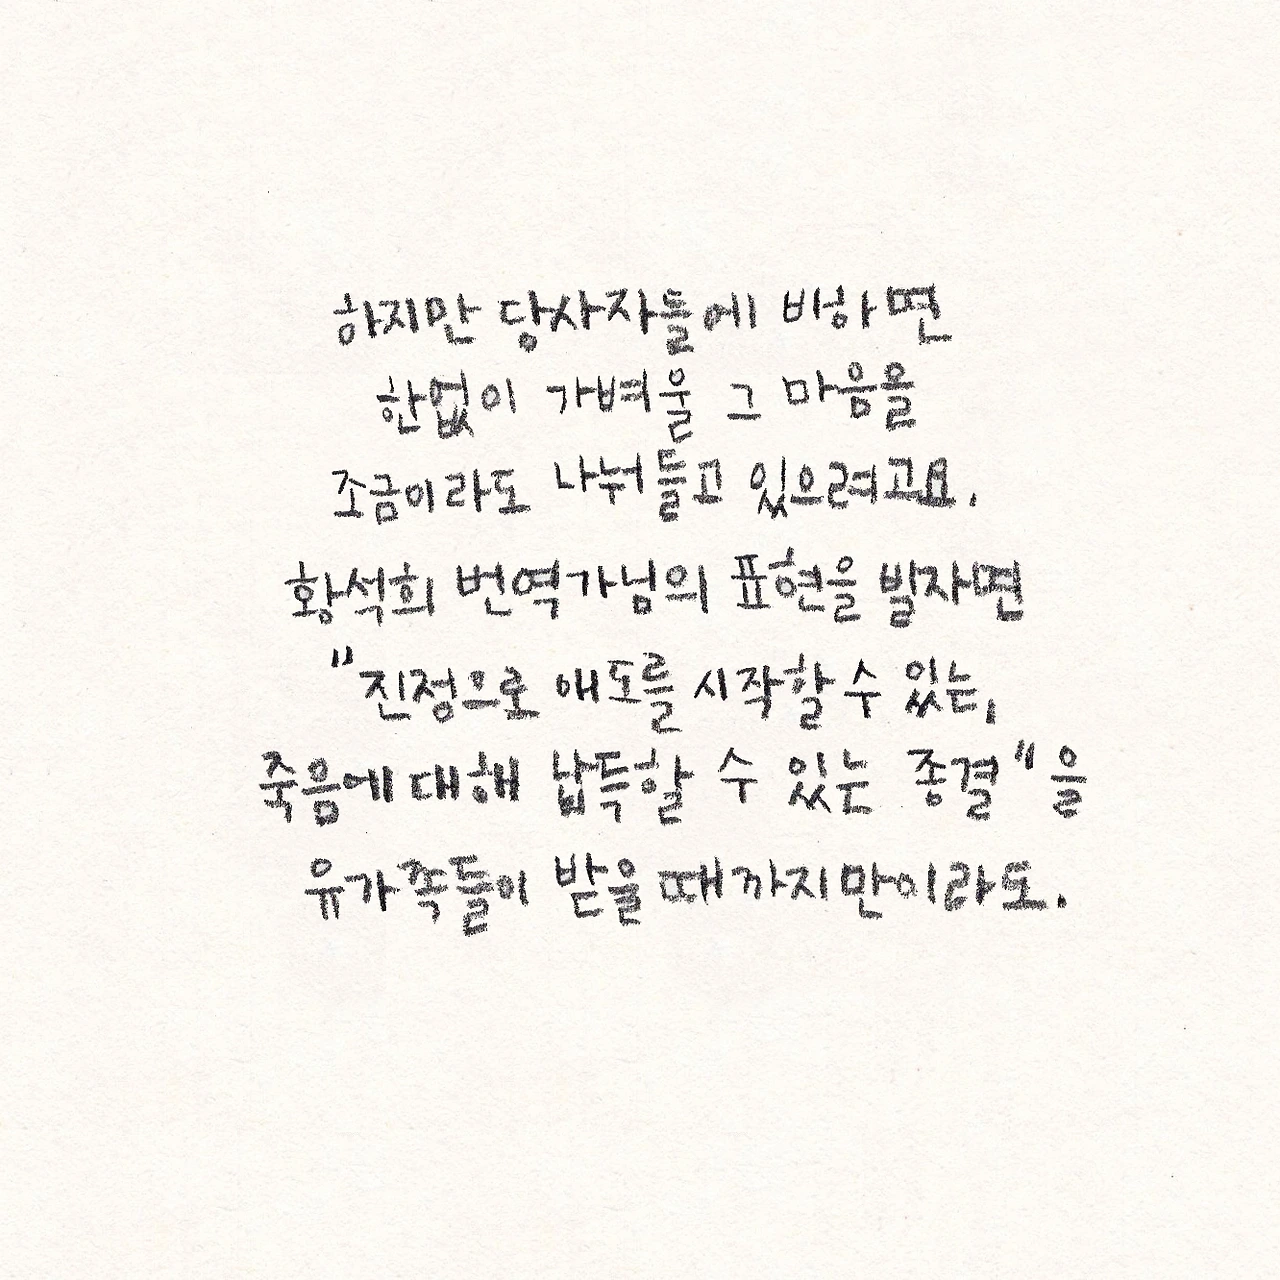 하지만 당사자들에 비하면
한없이 가벼울 그 마음을
조금이라도 나눠들고 있으려고요.
황석희 번역가님의 표현을 빌자면
"진정으로 애도를 시작할 수 있는,
죽음에 대해 납득할 수 있는 종결"을
유가족들이 받을 때까지만이라도.